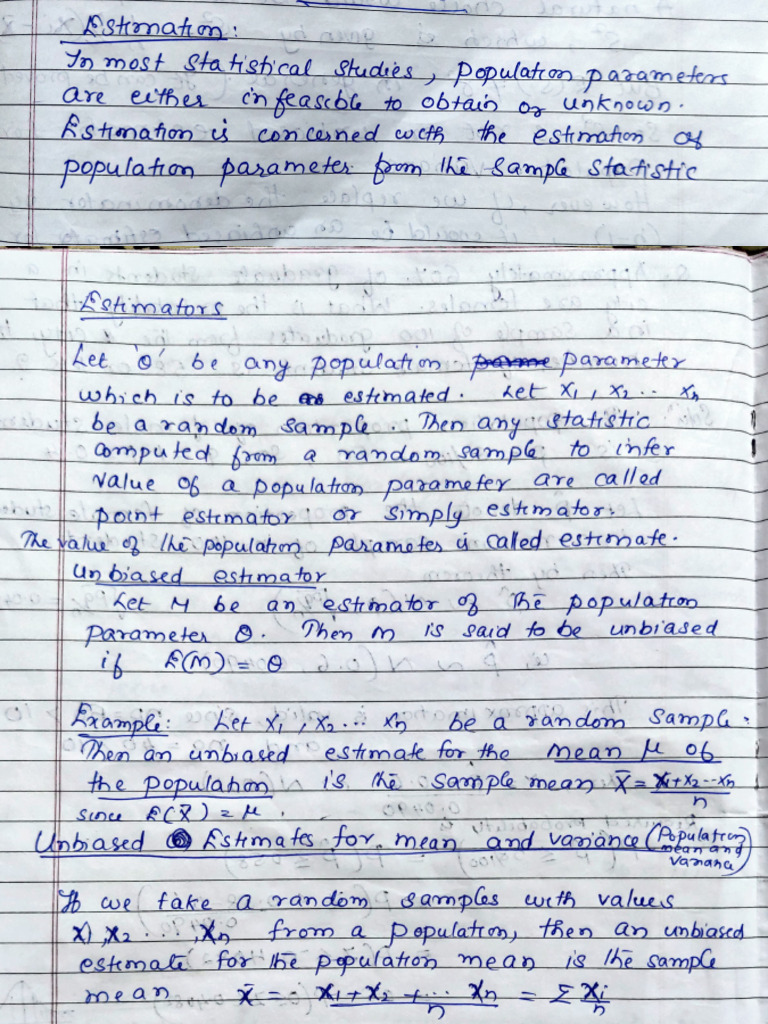 Estimation:
In most statistical studies, population parameters
are either infeasible to obtain or unknown.
Estimation is concerned with the estimation of
population parameter from the sample statistic
Estimators
Let 'θ' be any population parameter
which is to be estimated. Let X1, X2 .. Xn
be a random sample. Then any statistic
computed from a random sample to infer
value of a population parameter are called
point estimator or simply estimator.
The value of the population parameter is called estimate.
Unbiased estimator
Let M be an estimator of the population
parameter θ. Then M is said to be unbiased
if E(M) = θ
Example: Let X1, X2 ... Xn be a random sample.
Then an unbiased estimate for the mean μ of
the population is the sample mean X̄ = X1+X2...Xn/n
since E(X̄) = μ.
Unbiased Estimates for mean and variance (Population mean and variance)
If we take a random samples with values
X1, X2 ..., Xn from a population, then an unbiased
estimate for the population mean is the sample
mean X̄ = X1+X2+... Xn/n = Σ Xi/n